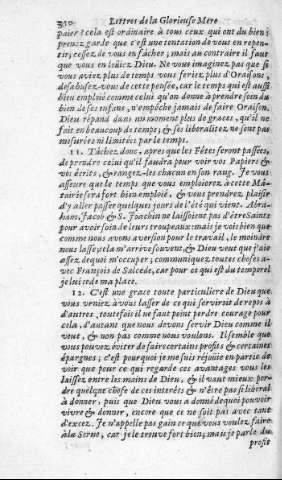 310 Lettres de la Glorieuse Mere
paier? cela est ordinaire à tous ceux qui ont du bien;
prenez garde que c'est une tentation de vous en repen-
tir; cessez de vous en fâcher, mais au contraire il faut
que vous en loüiez Dieu. Ne vous imaginez pas que si
vous aviez plus de temps vous feriez plus d'Oraison,
desabusez-vous de cette pensée, car le temps qui est aussi
bien emploié comme celui qu'on donne à prendre soin du
bien de ses enfans, n'empêche jamais de faire Oraison,
Dieu répand dans un moment plus de graces, qu'il ne
fait en beaucoup de temps; & ses liberalitez ne sont pas
mesurées ni limitées par le temps.
11. Tâchez donc, apres que les Fêtes seront passées,
de prendre celui qu'il faudra pour voir vos Papiers &
vos écrits, & rangez-les chacun en son rang. Je vous
assure que le temps que vous emploierez à cette Mé-
tairie sera fort bien emploié, & vous prendrez plaisir
d'y aller passer quelques jours de l'été qui vient. Abra-
ham, Jacob & S. Joachin ne laissoient pas d'être Saints
pour avoir soin de leurs troupeaux: mais je vois bien que
comme nous avons aversion pour le travail, le moindre
nous lasse; cela m'arrive souvent, & Dieu veut que j'aie
assez dequoi m'occuper; communiquez toutes choses a-
vec François de Salcede, car pour ce qui est du temporel
je lui cede ma place.
12. C'est une grace toute particuliere de Dieu que
vous veniez à vous lasser de ce qui serviroit de repos à
d'autres, toutefois il ne faut point perdre courage pour
cela, d'autant que nous devons servir Dieu comme il
veut, & non pas comme nous voulons. Il semble que
vous pouvez éviter de faire certains profits & certaines
épargnes; c'est pourquoi je me suis réjoüie en partie de
voir que pour ce qui regarde ces avantages vous les
laissez entre les mains de Dieu, & il vaut mieux per-
dre quelque chose de ces interêts & n'être pas si liberal
à donner, puis que Dieu vous a donné dequoi pouvoir
vivre & donner, encore que ce ne soit pas avec tant
d'excez. Je n'appelle pas gain ce que vous voulez faire
à la Serne, car je le trouve fort bien; mais je parle du
profit